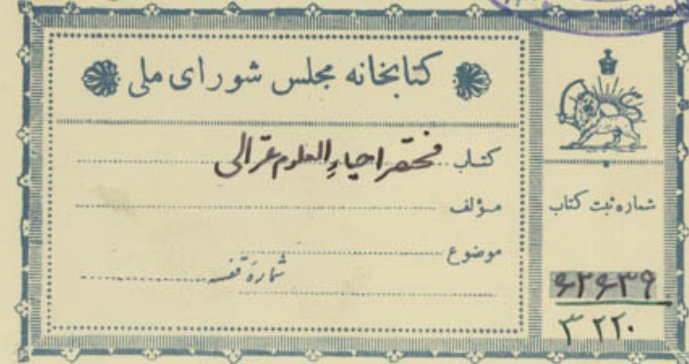 کتابخانه مجلس شورای ملی
کتاب مختصر احیاء العلوم غزالی
مؤلف
موضوع
شمارهٔ قفسه
شماره ثبت کتاب
۶۲۶۳۹
۳۲۲۰